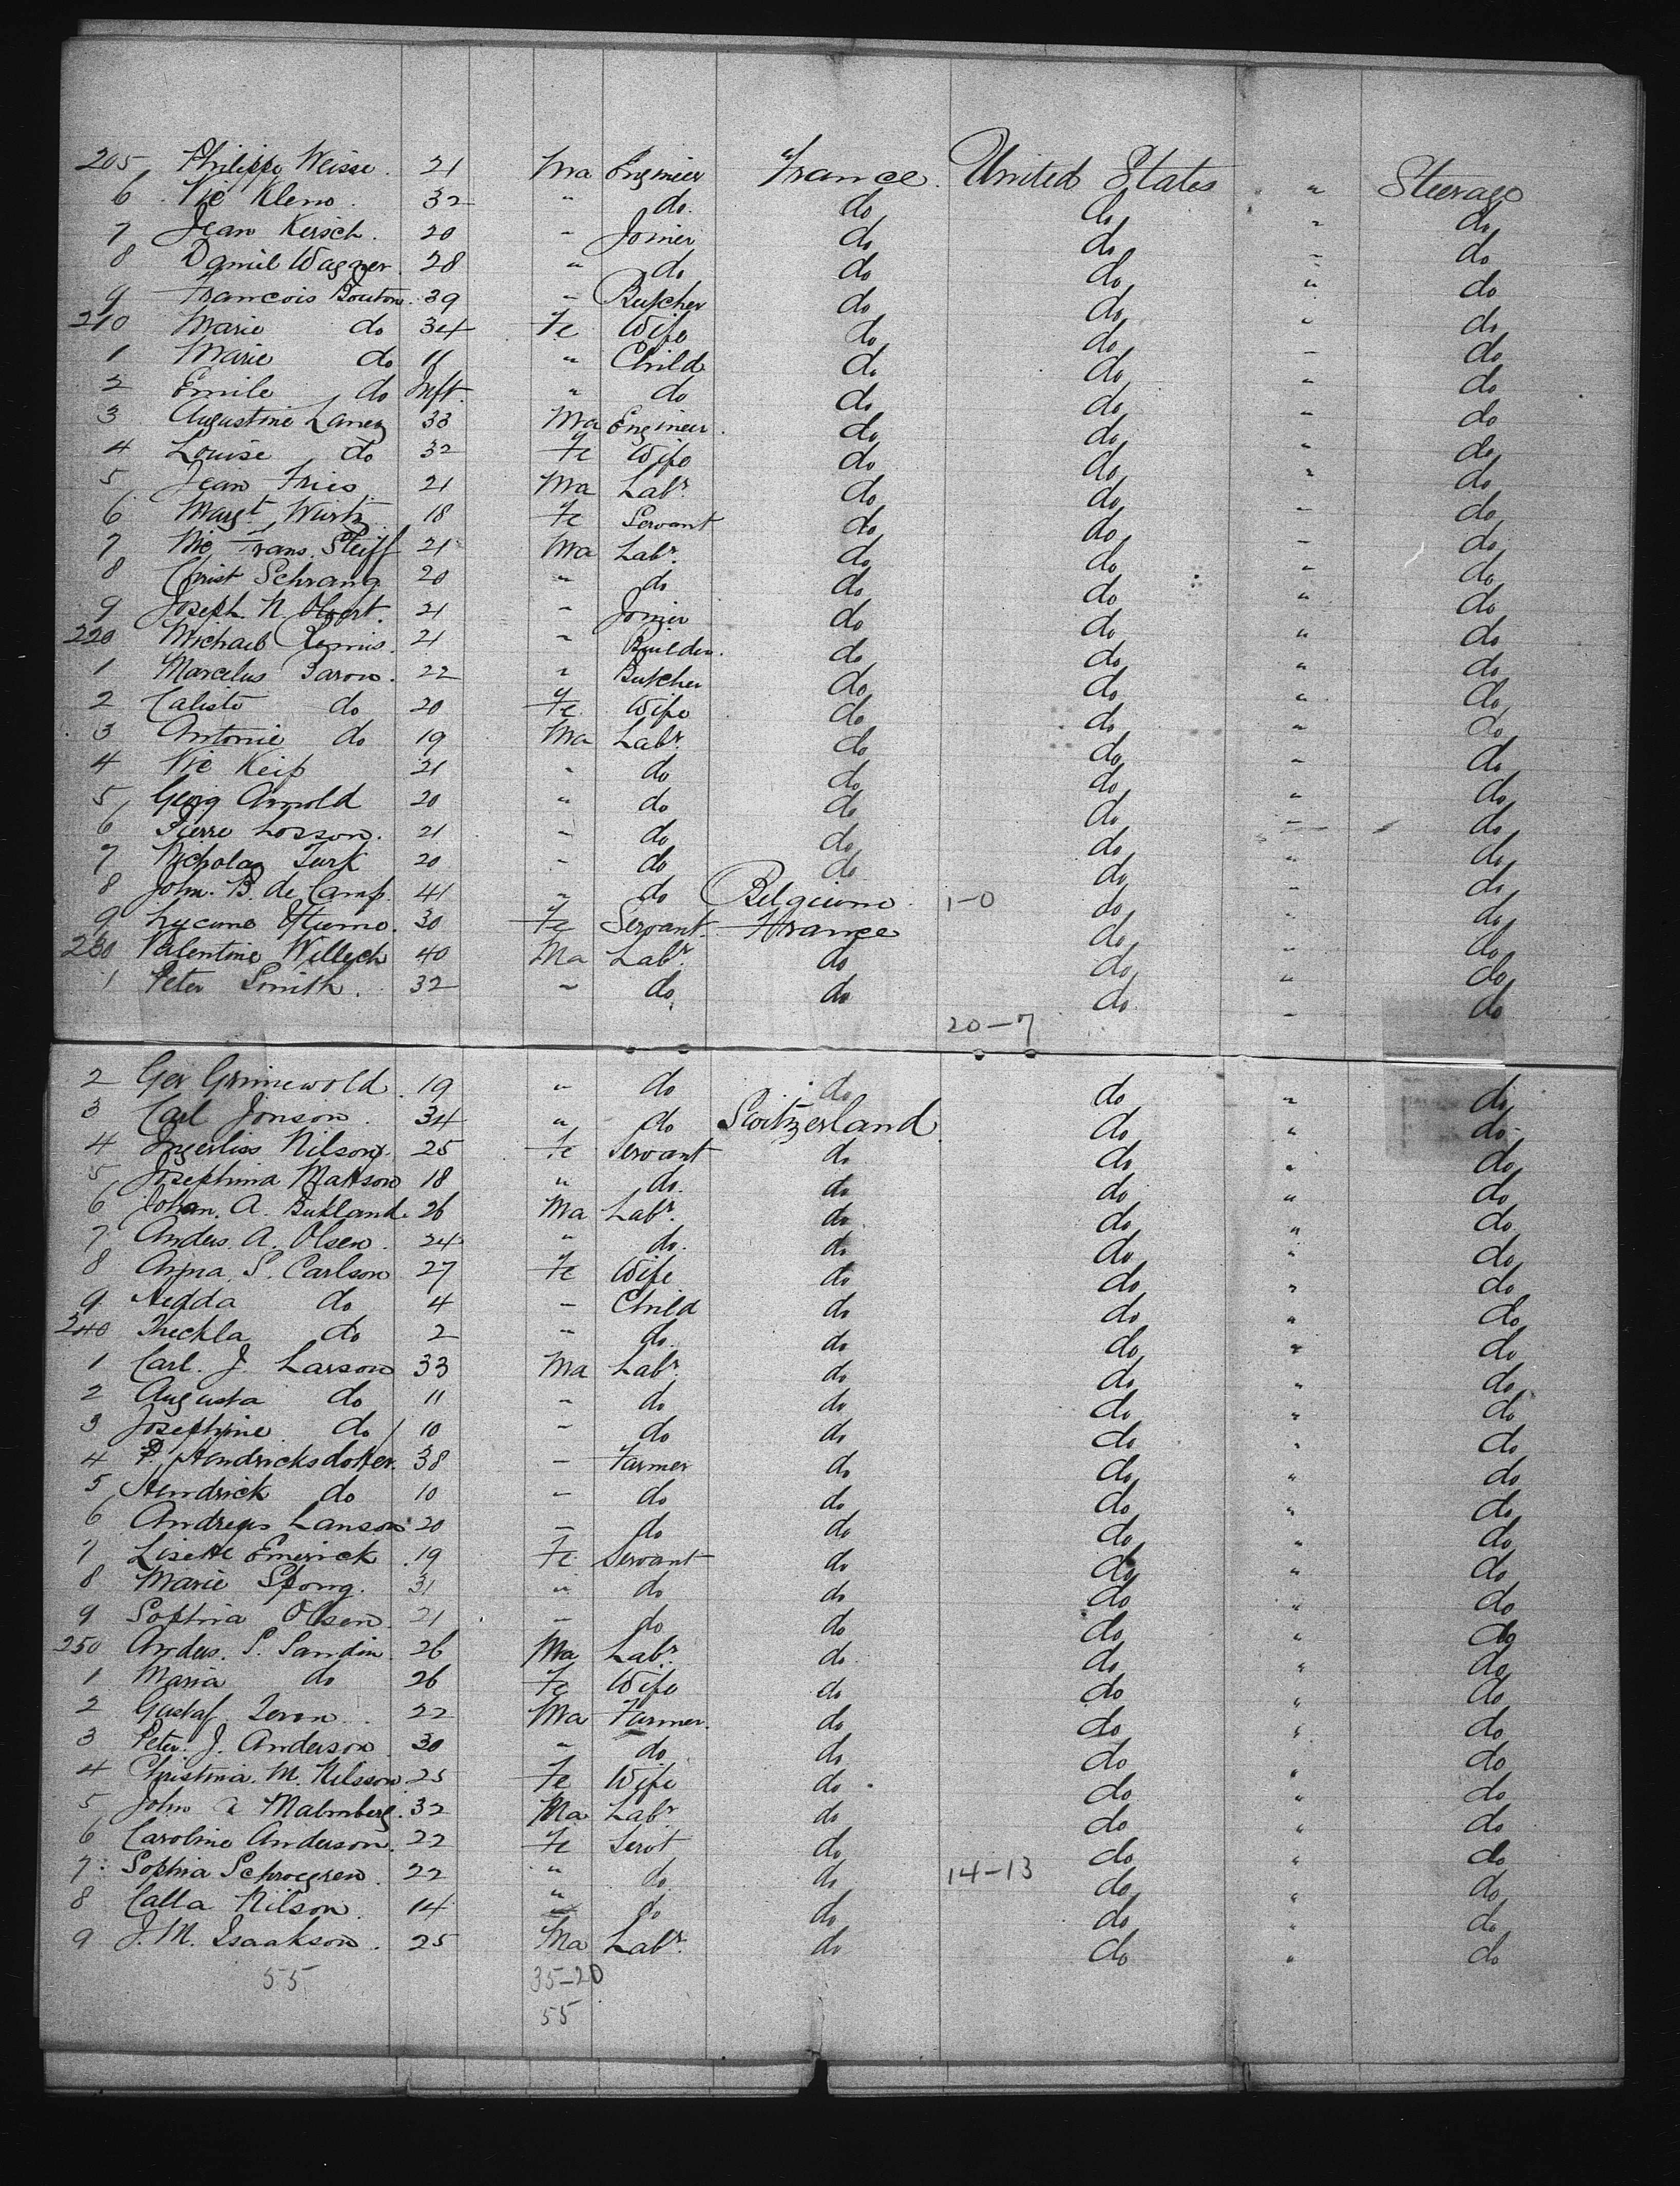 205 Philippe Weisse. 21 Ma Engineer France. United States " Steerage
6 Nic Klem. 32 " do. do do " do
7 Jean Kersch. 20 " Joiner do do " do
8 Daniel Wagner. 28 " do do do " do
9 Francois Bouton. 39 " Butcher do do " do
210 Marie do 34 Fe Wife do do " do
1 Marie do 11 " Child do do " do
2 Emile do Inft. " do do do " do
3 Augustine Laney 33 Ma Engineer. do do " do
4 Louise do 32 Fe Wife do do " do
5 Jean Fries 21 Ma Labr. do do " do
6 Margt. Wurtz 18 Fe Servant do do " do
7 Nic Frans. Steiff 21 Ma Labr. do do " do
8 Christ Schrang 20 " do do do " do
9 Joseph N. 21 " Joiner do do " do
220 Michael 21 " Builder. do do " do
1 Marcelus Baron. 22 " Butcher do do " do
2 Calisto do 20 Fe Wife do do " do
3 Antonie do 19 Ma Labr. do do " do
4 Nic Keip 21 " do do do " do
5 Georg Arnold 20 " do do do " do
6 Pierre Losson. 21 " do do do " do
7 Nicholas Turk 20 " do do do " do
8 John. B. de Camp. 41 " do Belgium. 1-0 do " do
9 30 Fe Servant. France do " do
230 Valentine Willech 40 Ma Labr. do do " do
1 Peter Smith. 32 " do do do " do
20-7
2 Ger Grimewold. 19 " do do do " do
3 Carl Jonson. 34 " do Switzerland do " do
4 Ingerliss Nilson. 25 Fe Servant do do " do
5 Josephina Matson 18 " do. do do " do
6 Johan. A. Bukland. 26 Ma Labr. do do " do
7 Anders. A. Olsen. 24 " do. do do " do
8 Anna. S. Carlson 27 Fe Wife do do " do
9 Hedda do 4 " Child do do " do
240 Theckla do 2 " do. do do " do
1 Carl. J. Larson 33 Ma Labr. do do " do
2 Augusta do 11 " do do do " do
3 Josephine do 10 " do do do " do
4 P. Hendricksdotter. 38 " Farmer do do " do
5 Hendrick do 10 " do do do " do
6 Andreas Lanson 20 " do do do " do
7 Lisette Emerick. 19 Fe Servant do do " do
8 Marie Spong. 31 " do do do " do
9 Sophia Olsen. 21 " do do do " do
250 Anders. S. Sandin 26 Ma Labr. do do " do
1 Maria do 26 Fe Wife do do " do
2 Gustaf 22 Ma Farmer. do do " do
3 Peter. J. Anderson 30 " do do do " do
4 Christina. M. Nilsson 25 Fe Wife do do " do
5 John A Malmberg. 32 Ma Labr. do do " do
6 Caroline Anderson. 22 Fe Servt do do " do
7 Sophia Schroegren. 22 " do do 14-13 do " do
8 Calla Nilson. 14 " do do do " do
9 J. M. Isaakson. 25 Ma Labr. do do " do
55 35-20
55